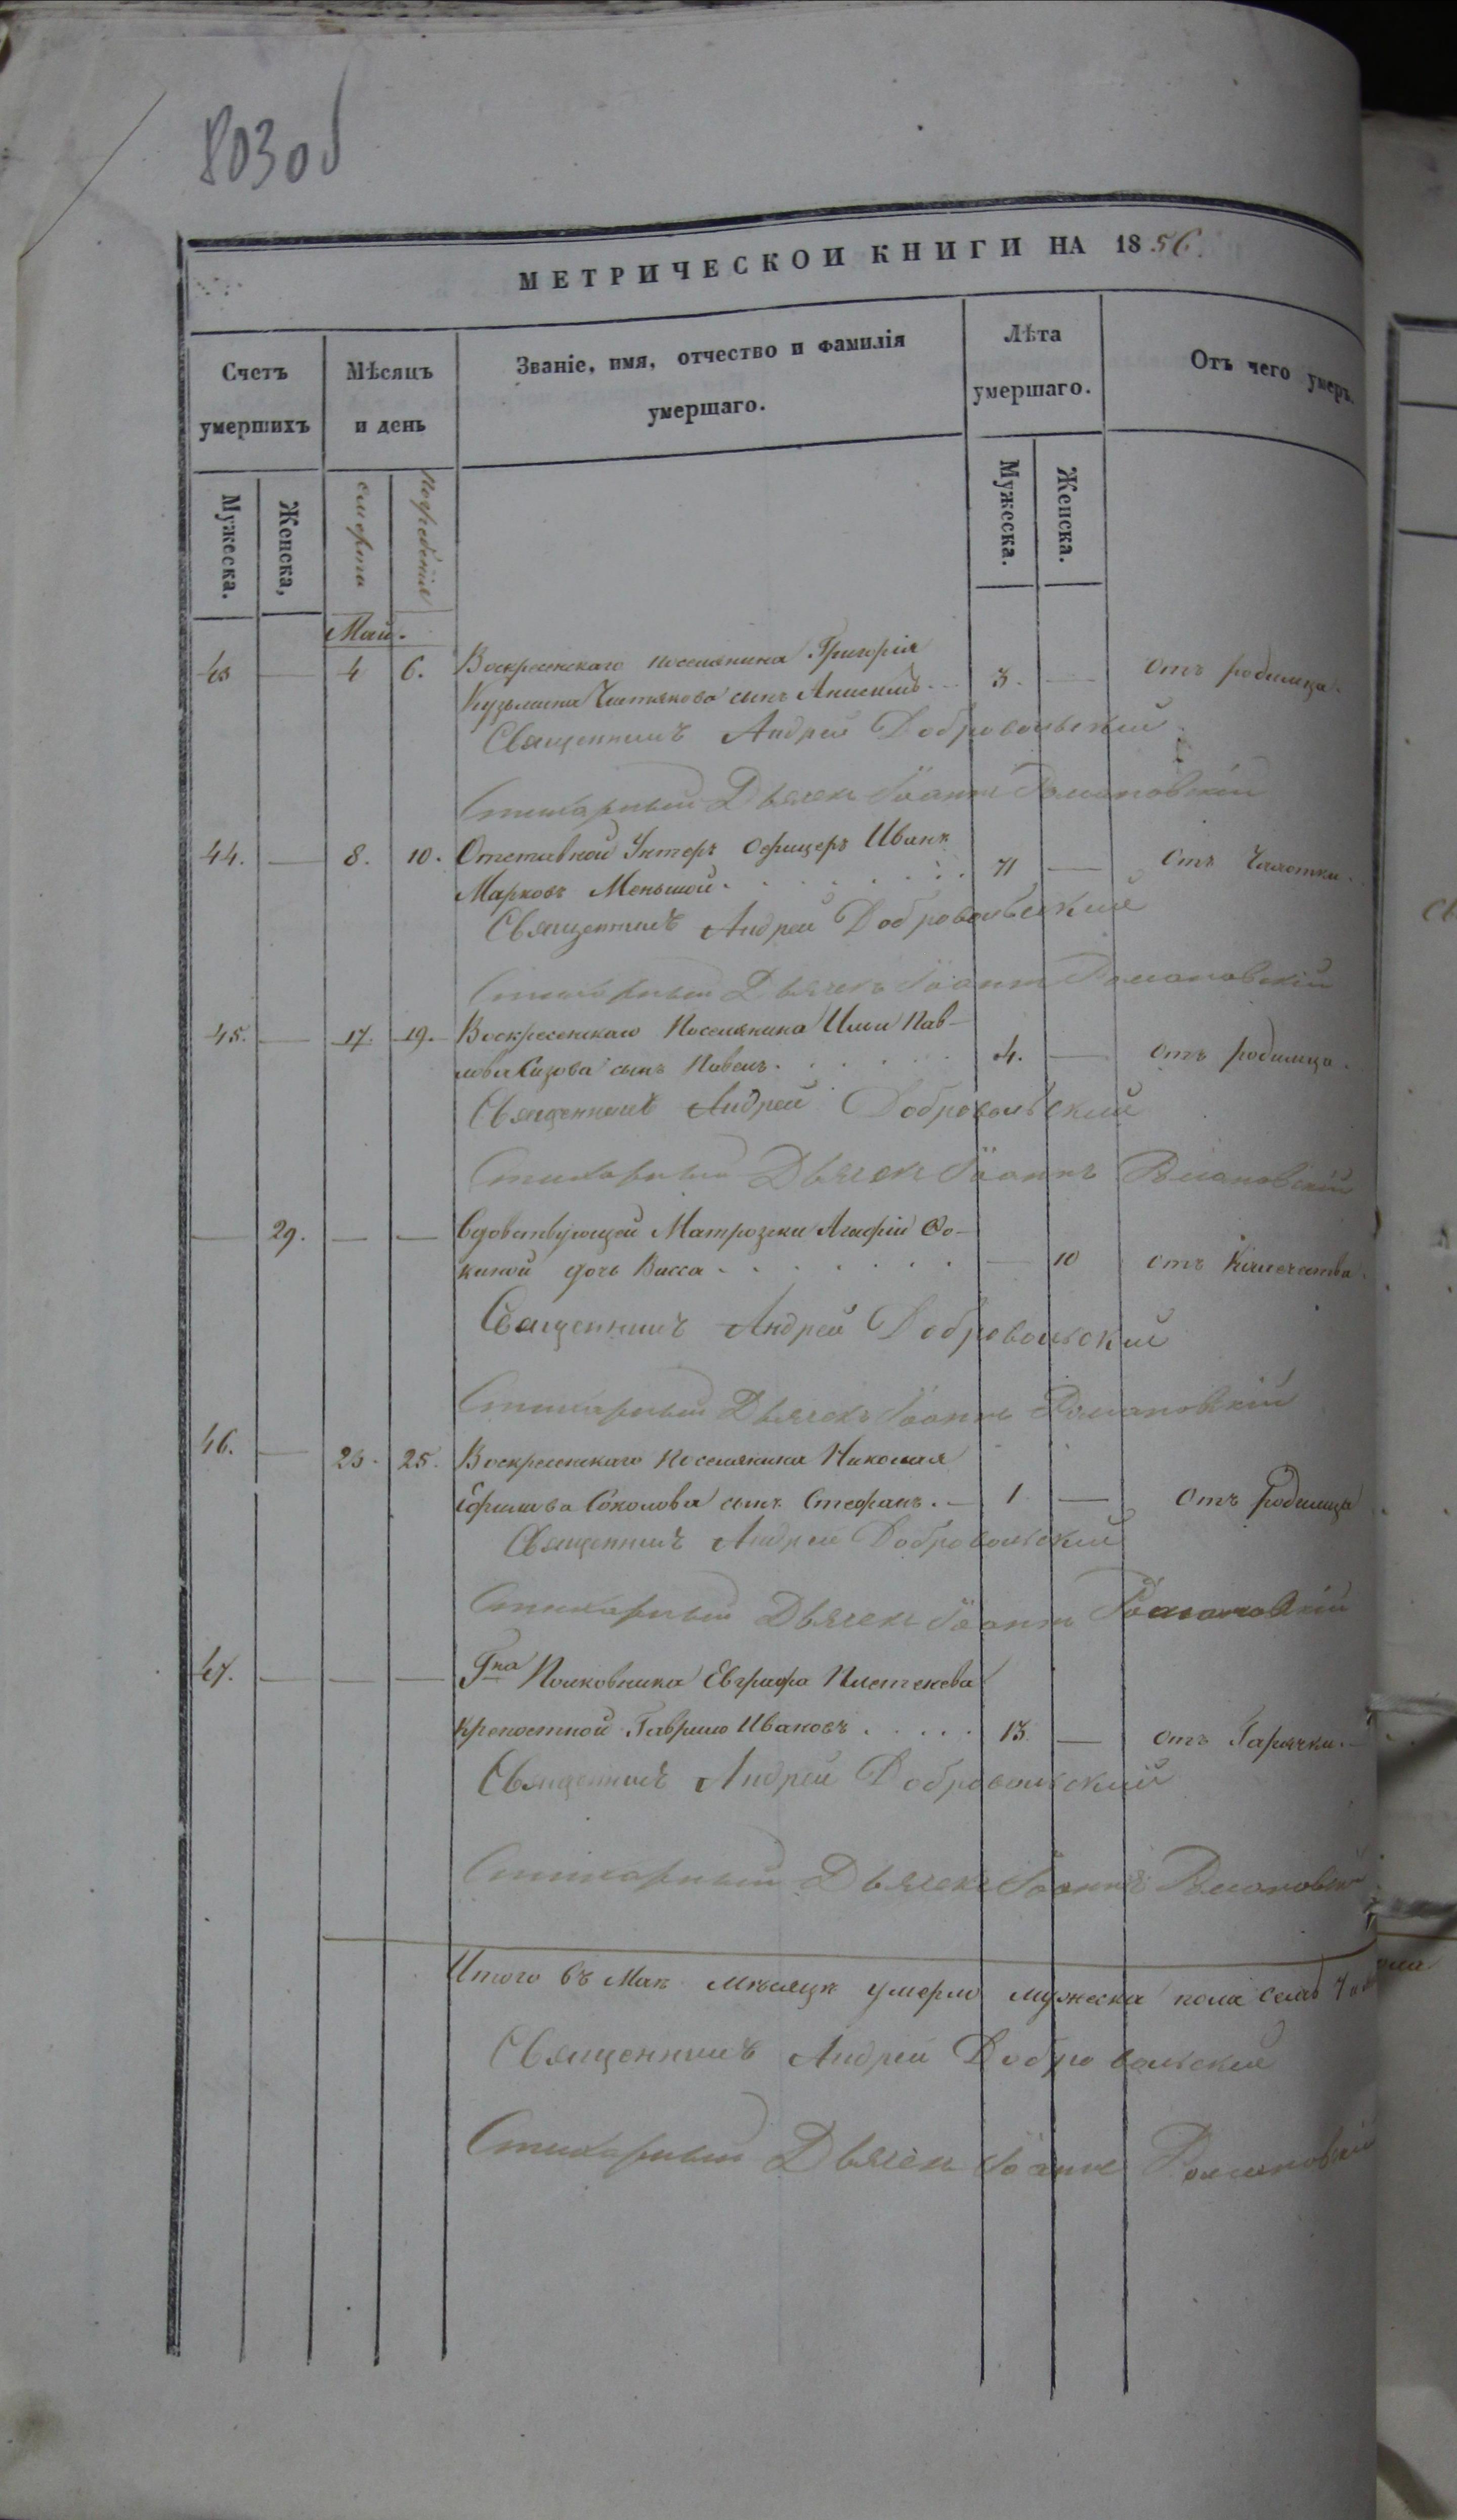 803об
МЕТРИЧЕСКОЙ КНИГИ НА 1856.
Счетъ умершихъ
Мѣсяцъ и день
Званіе, имя, отчество и фамилія умершаго.
Лѣта умершаго.
Отъ чего умеръ.
Мужеска.
Женска,
смерти
Погребенія
Мужеска.
Женска.
Май.
43 — 4 6. Воскресенскаго поселянина Григорія
Кузьмина Чистякова сынъ Анисимъ. 3. — Отъ родимца.
Священникъ Андрей Добровольский
Стихарный Дьячек Іоаннъ Романовскій
44. — 8. 10. Отставной Унтеръ Офицеръ Иванъ
Марковъ Меньшой. 71 — Отъ Чахотки.
Священникъ Андрей Добровольский
Стихарный Дьячекъ Іоаннъ Романовскій
45. — 17. 19. Воскресенскаго Поселянина Ильи Пав-
лова Сизова сынъ Павелъ. 4. — Отъ родимца.
Священникъ Андрей Добровольский
Стихарный Дьячек Іоаннъ Романовскій
— 29. — — Вдовствующей Матрозски Агафіи Фо-
киной дочь Васса — 10 отъ Колечества.
Священникъ Андрей Добровольский
Стихарный Дьячекъ Іоаннъ Романовскій
46. — 23. 25. Воскресенскаго Поселянина Николая
Ефимова Соколова сынъ Стефанъ. 1 — Отъ Родимца
Священникъ Андрей Добровольский
Стихарный Дьячекъ Іоаннъ Романовскій
47. — — — Гна Полковника Евграфа
Крепостной Гаврило Ивановъ 13. — отъ Гарячки.
Священникъ Андрей Добровольский
Стихарный Дьячекъ Іоаннъ Романовскій
Итого въ Маѣ мѣсяцѣ умерло мужеска пола семь
Священникъ Андрей Добровольский
Стихарный Дьячек Іоаннъ Романовскій